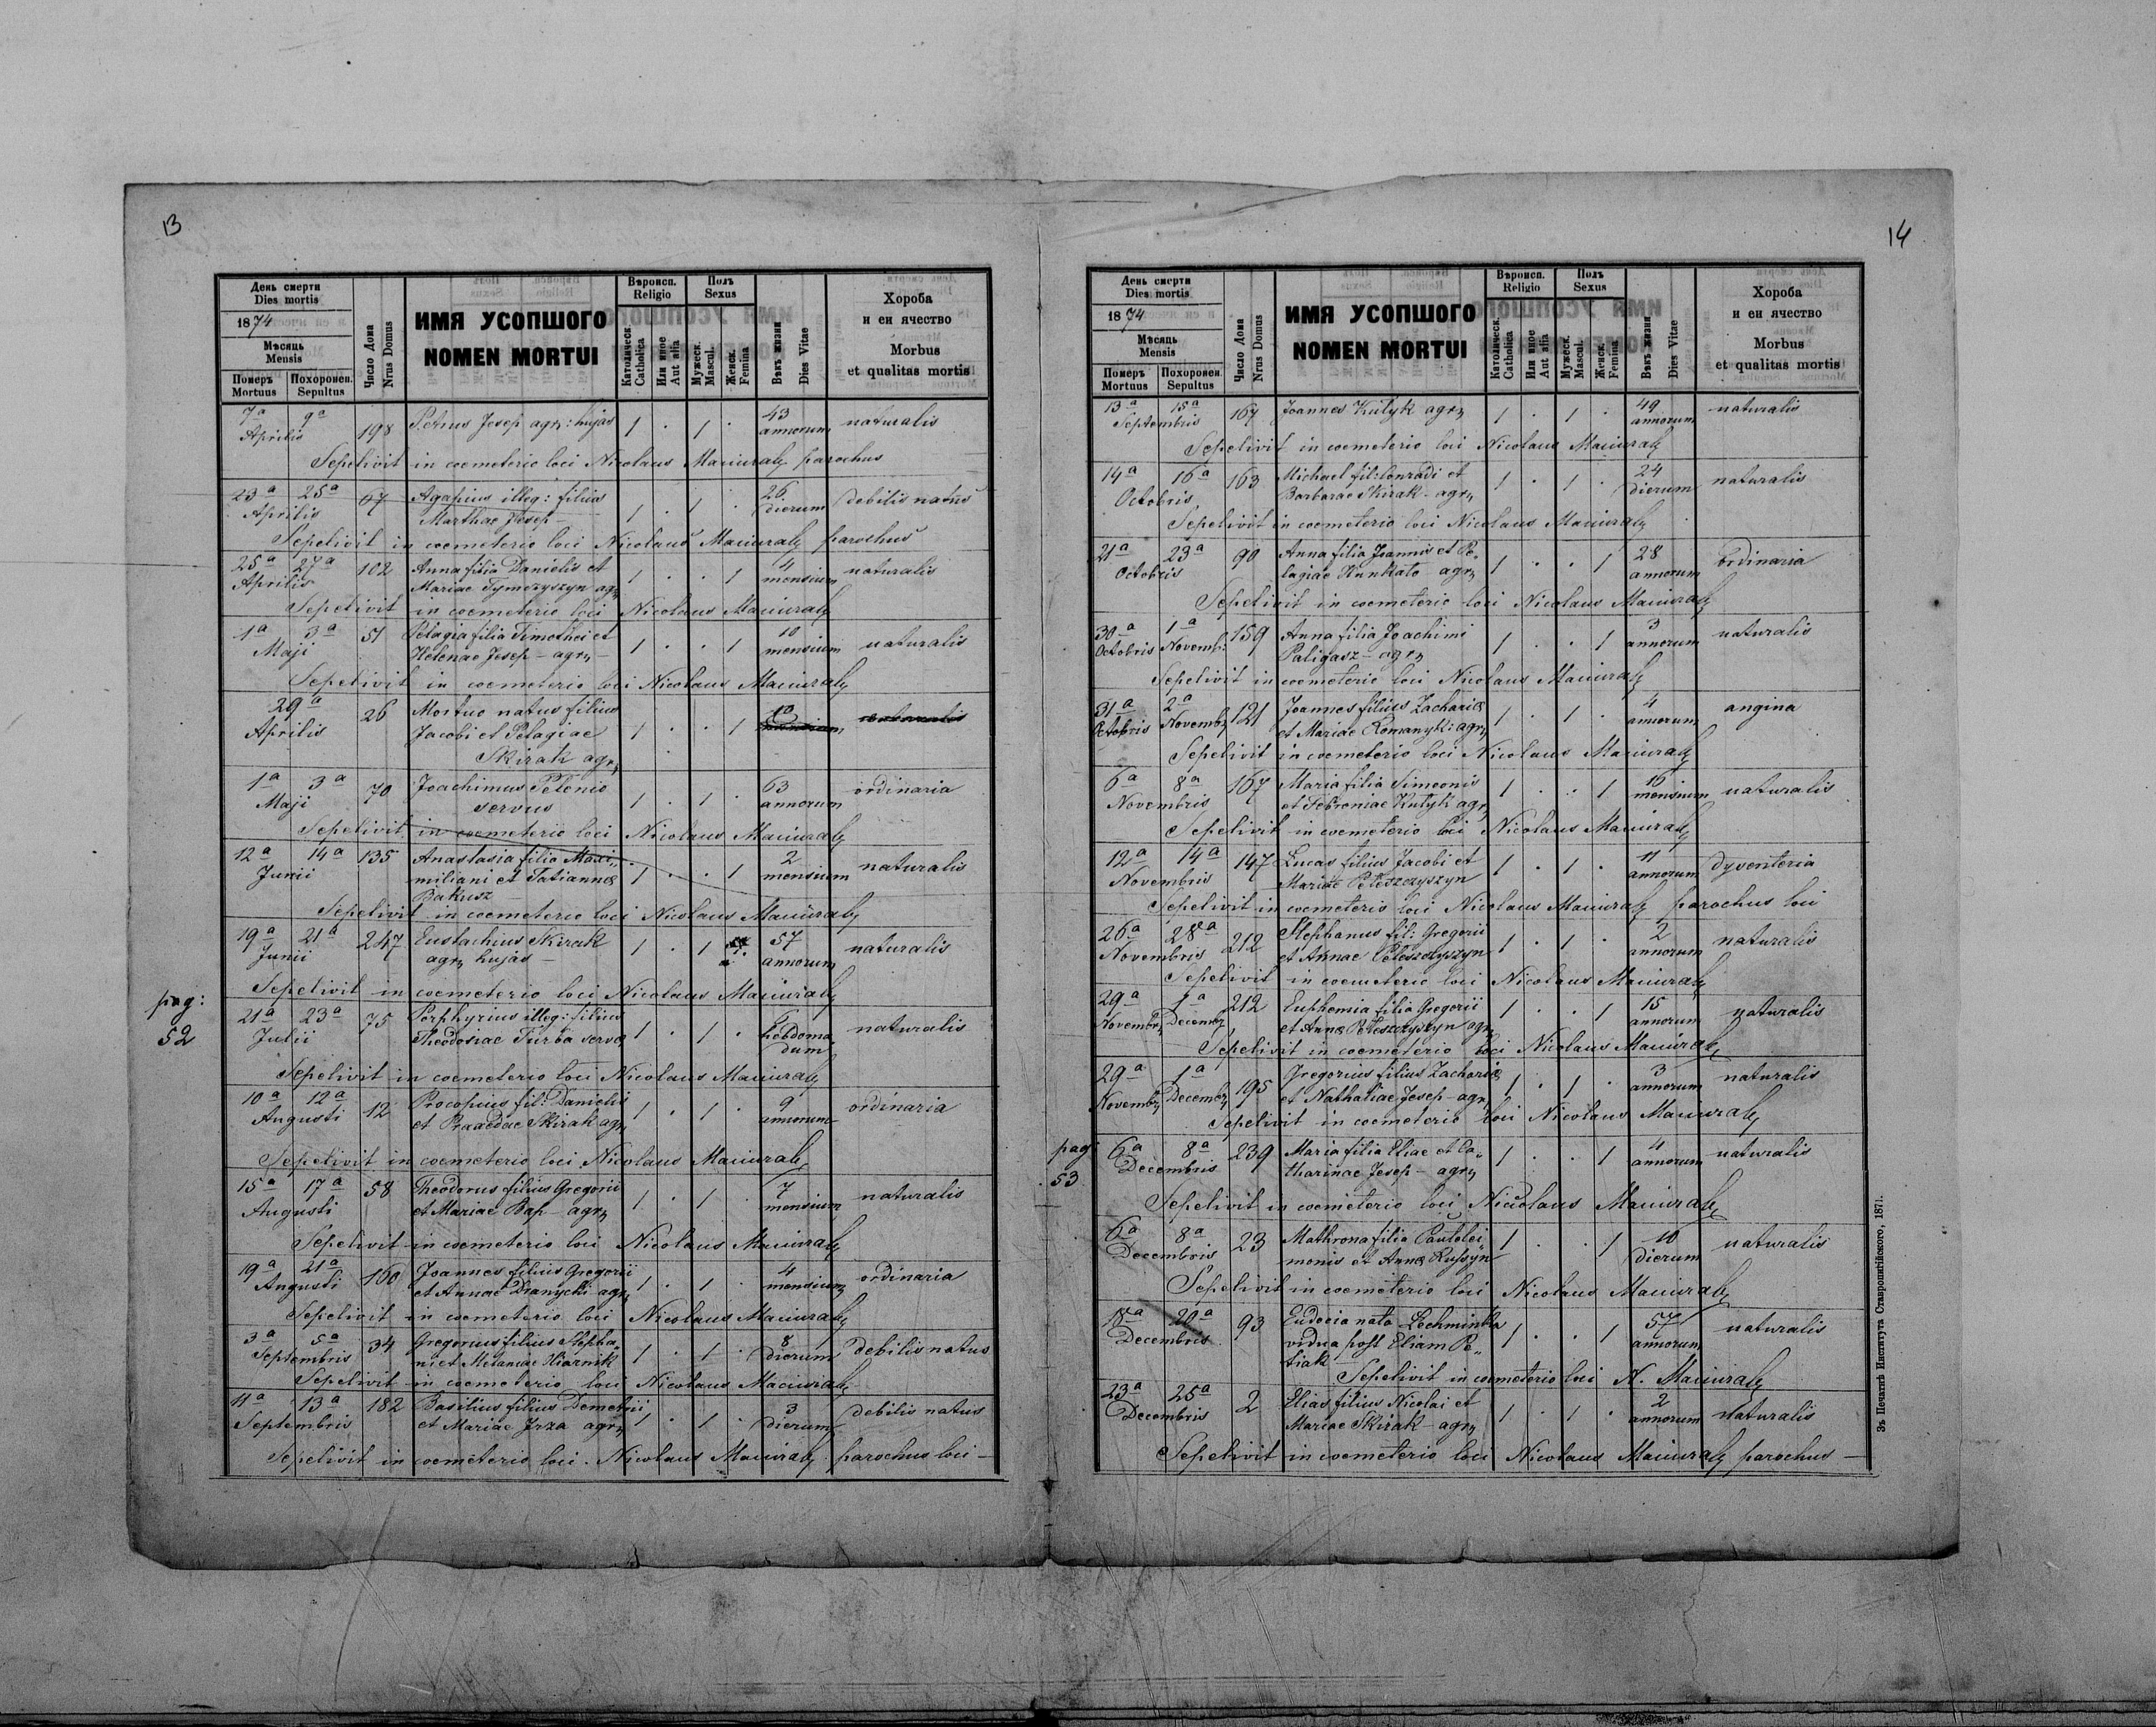 13
День смерти
Dies mortis
1874
Мѣсяць
Mensis
Померъ
Mortuus
Похоронен.
Sepultus
Число Дома
Nrus Domus
ИМЯ УСОПШОГО
NOMEN MORTUI
Вѣроисп.
Religio
Католическ.
Catholica
Или иное
Aut alia
Полъ
Sexus
Мужеск.
Mascul.
Женск.
Femina
Вѣкъ жизни
Dies Vitae
Хороба
и еи ячество
Morbus
et qualitas mortis
7a 9a Aprilis 198 Petrus Jesep agr: hujas 1 . 1 . 43 annorum naturalis
Sepelivit in coemeterio loci Nicolaus parochus
23a 25a Aprilis 67 Agapius illeg: filius 1 . 1 . 26 dierum debilis natus
Marthae Jesep
Sepelivit in coemeterio loci Nicolaus parochus
25a 27a Aprilis 102 Anna filia Danielis et 1 . . 1 4 mensium naturalis
Mariae Tymczyszyn agr
Sepelivit in coemeterio loci Nicolaus
1a 3a Maji 51 Pelagia filia Timothei et 1 . . 1 10 mensium naturalis
Helenae Jesep - agr -
Sepelivit in coemeterio loci Nicolaus
29a Aprilis 26 Mortuo natus filius 1 . . 1
Jacobi et Pelagiae
Skirak agr
1a 3a Maji 70 Joachimus 1 . 1 . 63 annorum ordinaria
servus
Sepelivit in coemeterio loci Nicolaus
12a 14a Junii 135 Anastasia filia Maxi„ 1 . . 1 2 mensium naturalis
miliani et Tatiannae
Bakusz
Sepelivit in coemeterio loci Nicolaus
19a 21a Junii 247 Eustachius Skirak 1 . 1 57 annorum naturalis
agr hujas -
Sepelivit in coemeterio loci Nicolaus
pag:
52
21a 23a Julii 75 Porphyrius illeg: filius 1 . 1 . hebdoma dum naturalis
Theodosiae Turba servae
Sepelivit in coemeterio loci Nicolaus
10a 12a Augusti 12 Procopius fil: Danielis 1 . 1 . 9 annorum ordinaria
et Skirak agr
Sepelivit in coemeterio loci Nicolaus
15a 17a Augusti 58 Theodorus filius Gregorii 1 . 1 . 7 mensium naturalis
et Mariae Bap - agr
Sepelivit in coemeterio loci Nicolaus
19a 21a Augusti 160 Joannes filius Gregorii 1 . 1 . 4 mensium ordinaria
et Annae agr
Sepelivit in coemeterio loci Nicolaus
3a 5a Septembris 34 Gregorius filius Stepha„ 1 . 1 . 8 dierum debilis natus
ni et Melaniae
Sepelivit in coemeterio loci Nicolaus
11a 13a Septembris 182 Basilius filius Demetrii 1 . 1 . 3 dierum debilis natus
et Mariae Irza agr
Sepelivit in coemeterio loci . Nicolaus parochus loci -
14
День смерти
Dies mortis
1874
Мѣсяць
Mensis
Померъ
Mortuus
Похоронен.
Sepultus
Число Дома
Nrus Domus
ИМЯ УСОПШОГО
NOMEN MORTUI
Вѣроисп.
Religio
Католическ.
Catholica
Или иное
Aut alia
Полъ
Sexus
Мужеск.
Mascul.
Женск.
Femina
Вѣкъ жизни
Dies Vitae
Хороба
и еи ячество
Morbus
et qualitas mortis
13a 15a Septembris 167 Joannes Kutyk agr 1 . 1 . 49 annorum naturalis
Sepelivit in coemeterio loci Nicolaus
14a 16a Octobris 163 Michael fil: Conradi et 1 . 1 . 24 dierum naturalis
Barbarae Skirak - agr
Sepelivit in coemeterio loci Nicolaus
21a 23a Octobris 90 Anna filia Joannis et Pe„ 1 . . 1 28 annorum ordinaria
lagiae agr
Sepelivit in coemeterio loci Nicolaus
30a Octobris 1a Novemb: 159 Anna filia Joachimi 1 . . 1 3 annorum naturalis
Paligasz - agr
Sepelivit in coemeterio loci Nicolaus
31a Octobris 2a Novemb 121 Joannes filius Zachariae 1 . 1 . 4 annorum angina
et Mariae Romanyk: agr
Sepelivit in coemeterio loci Nicolaus
6a 8a Novembris 167 Maria filia Simeonis 1 . . 1 16 mensium naturalis
et Febroniae Kutyk agr
Sepelivit in coemeterio loci Nicolaus
12a 14a Novembris 147 Lucas filius Jacobi et 1 . 1 . 11 annorum dyventeria
Mariae Peleszczyszyn
Sepelivit in coemeterio loci Nicolaus parochus loci
26a 28a Novembris 212 Stephanus fil: Gregorii 1 . 1 . 2 annorum naturalis
et Annae Peleszczyszyn
Sepelivit in coemeterio loci Nicolaus
29a Novemb 1a Decemb 212 Euphemia filia Gregorii 1 . . 1 15 annorum naturalis
et Annae Peleszczyszyn agr
Sepelivit in coemeterio loci Nicolaus
29a Novemb 1a Decemb 195 Gregorius filius Zachariae 1 . 1 . 3 annorum naturalis
et Nathaliae Jesep - agr
Sepelivit in coemeterio loci Nicolaus
pag
53
6a 8a Decembris 239 Maria filia Eliae et Ca„ 1 . . 1 4 annorum naturalis
tharinae Jesep - agr
Sepelivit in coemeterio loci Nicolaus
6a 8a Decembris 23 Mathrona filia Pantelei 1 . . 1 10 dierum naturalis
monis et Annae
Sepelivit in coemeterio loci Nicolaus
18a 20a Decembris 93 Eudocia nata 1 . . 1 57 annorum naturalis
vidua post Eliam Pe„
tiak
Sepelivit in coemeterio loci N.
23a 25a Decembris 2 Elias filius Nicolai et 1 . 1 . 2 annorum naturalis
Mariae Skirak - agr
Sepelivit in coemeterio loci Nicolaus parochus -
Зъ Печатнѣ Института Ставропигійского, 1871.